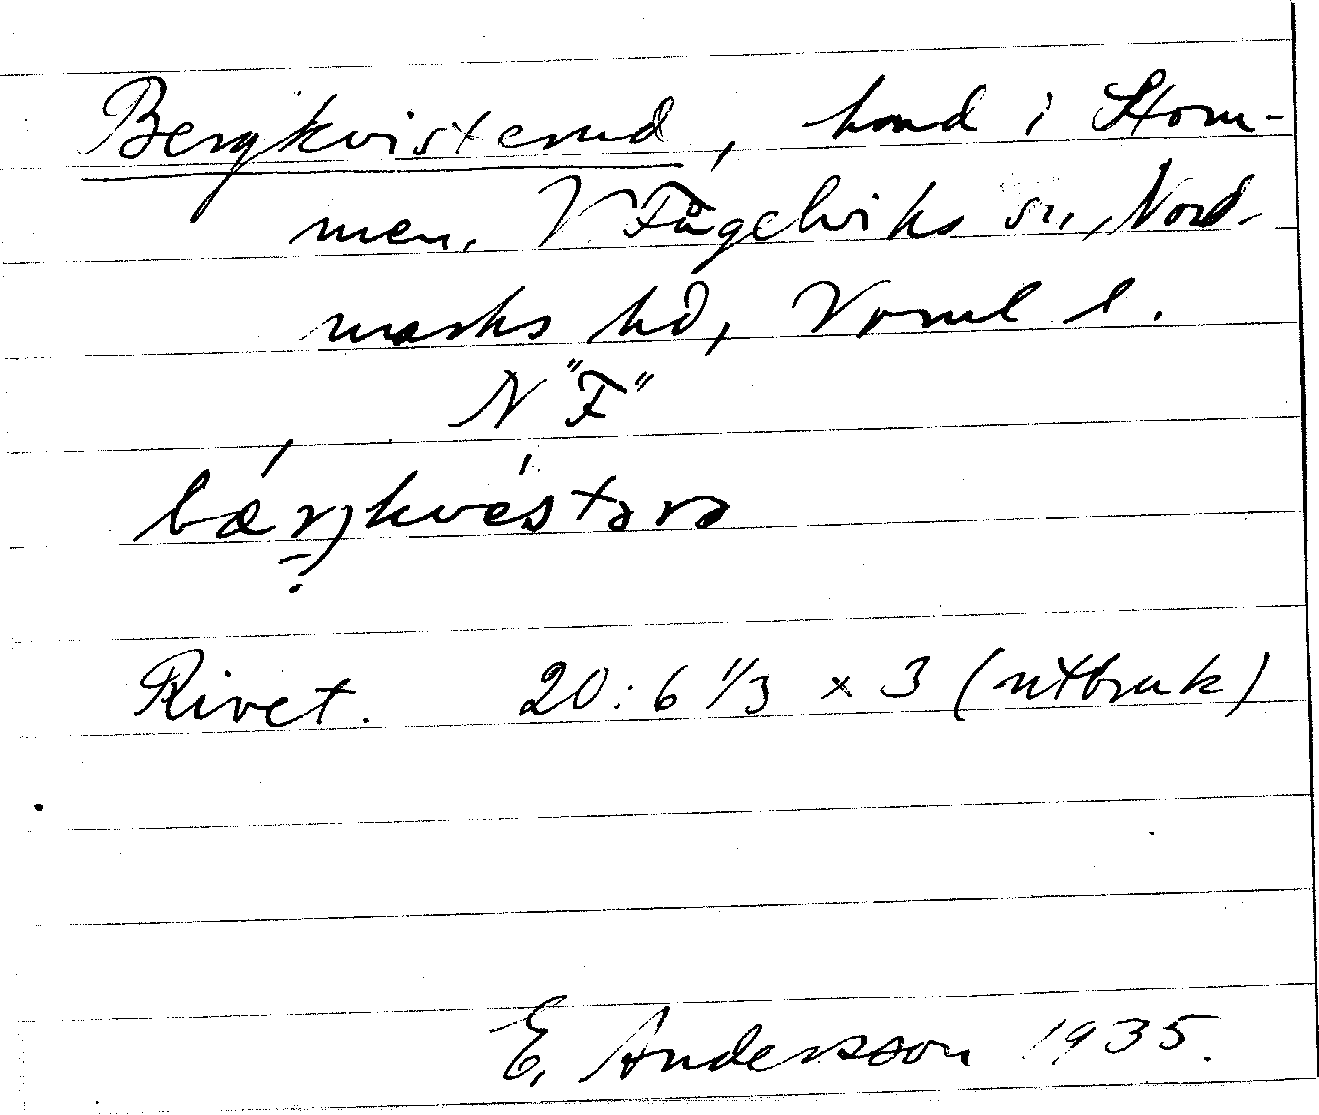 Bergkvisterud, hmd i Stom-
men, V Fågelviks sn, Nord-
marks hd, Vrml l.
N "F"
bærjkvéstərə
Rivet. 20:6 1/3 x 3 (utbruk)
E. Andersson 1935.